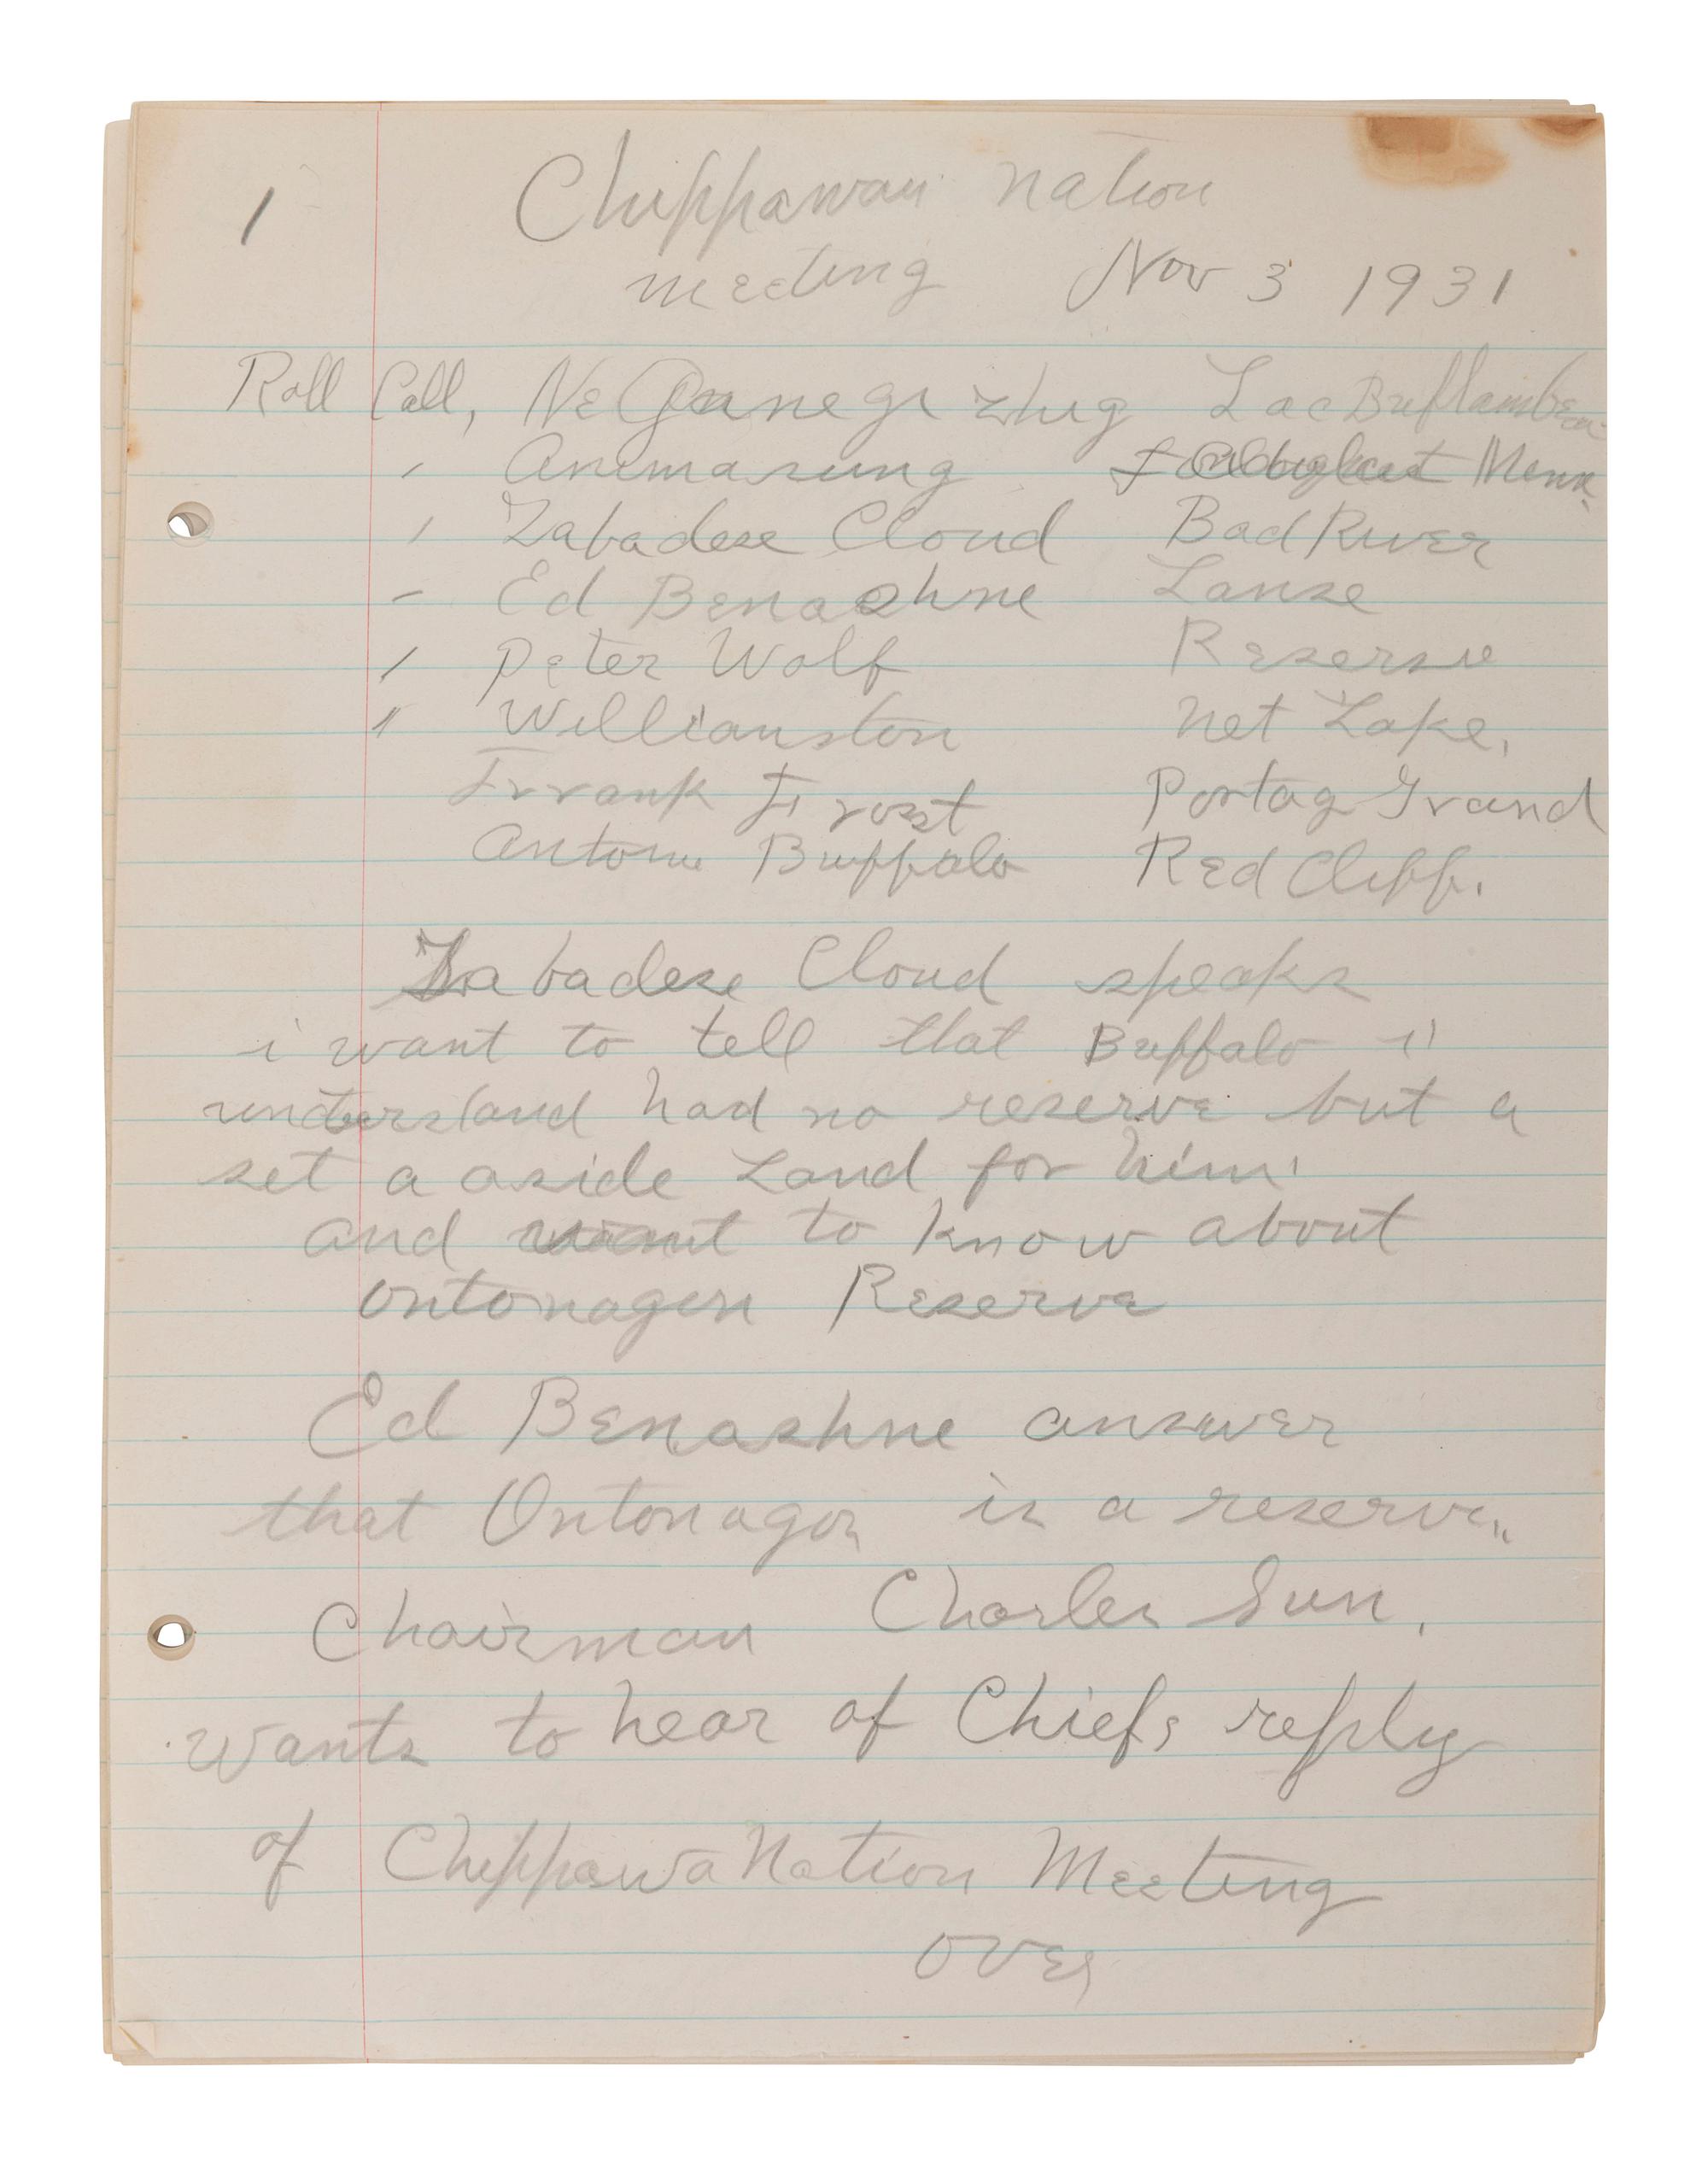 1 Chippawau Nation
meeting Nov 3 1931
Roll Call, NeGanegizhig Lac Buflambeau
Animasung Minn.
Zabadese Cloud Bad River
Ed Benashne Lanse
Peter Wolf Reserve
Willianston Net Lake,
Frrank Frost Portag Grand
Antoine Buffalo Red Cliff.
Zabadese Cloud speaks
i want to tell that Buffalo i
understand had no reserve but a
set a aside Land for him
and want to know about
Ontonagon Reserve
Ed Benashne answer
that Ontonagon is a reserve
Chairman Charles Sun,
wants to hear of Chiefs reply
of Chippawa Nation Meeting
over